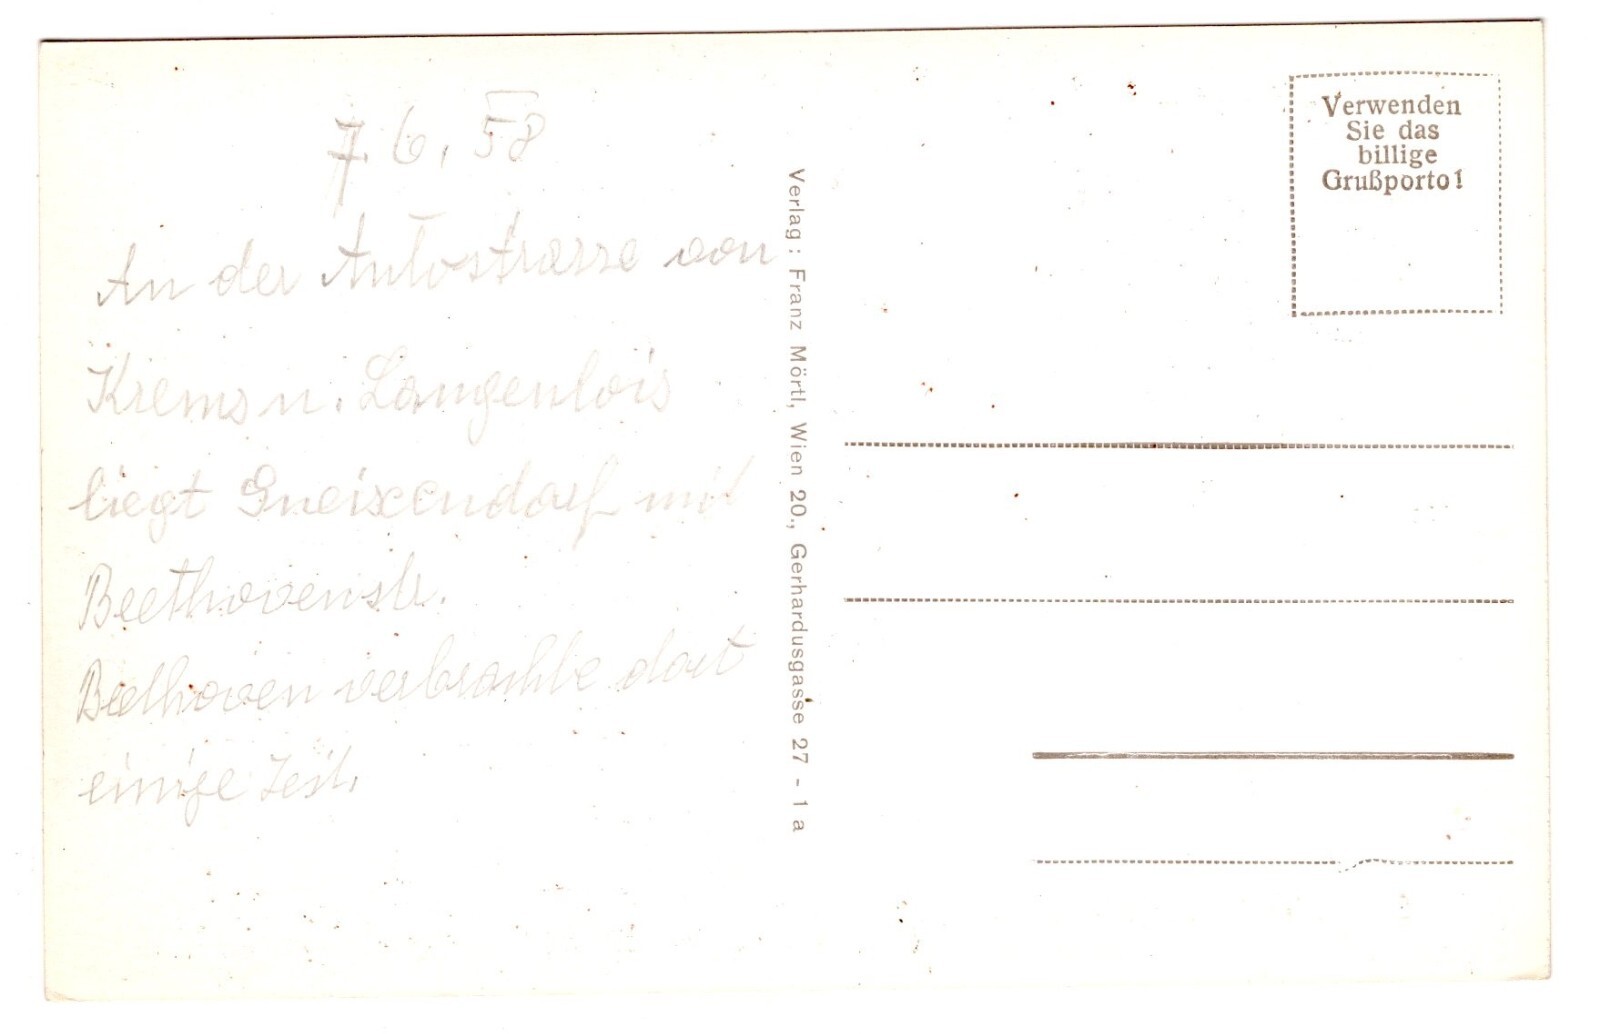 7. 6. 58
An der Autostrasse von
Krems n. Langenlois
liegt Gneixendorf mit
Beethovenstr.
Beethoven verbrachte dort
einige Zeit.
Verlag: Franz Mörtl, Wien 20., Gerhardusgasse 27 - 1 a
Verwenden
Sie das
billige
Grußporto!